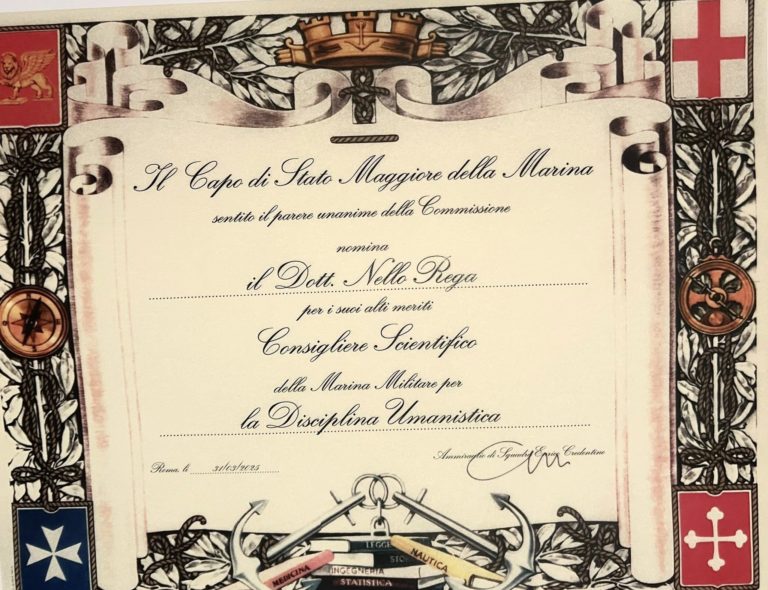 Il Capo di Stato Maggiore della Marina
sentito il parere unanime della Commissione
nomina
il Dott. Nello Rega
per i suoi alti meriti
Consigliere Scientifico
della Marina Militare per
la Disciplina Umanistica
Roma, li 31/03/2025
Ammiraglio di Squadra Enrico Credentino
LEGGE
STO
NAUTICA
MEDICINA
INGEGNERIA
STATISTICA